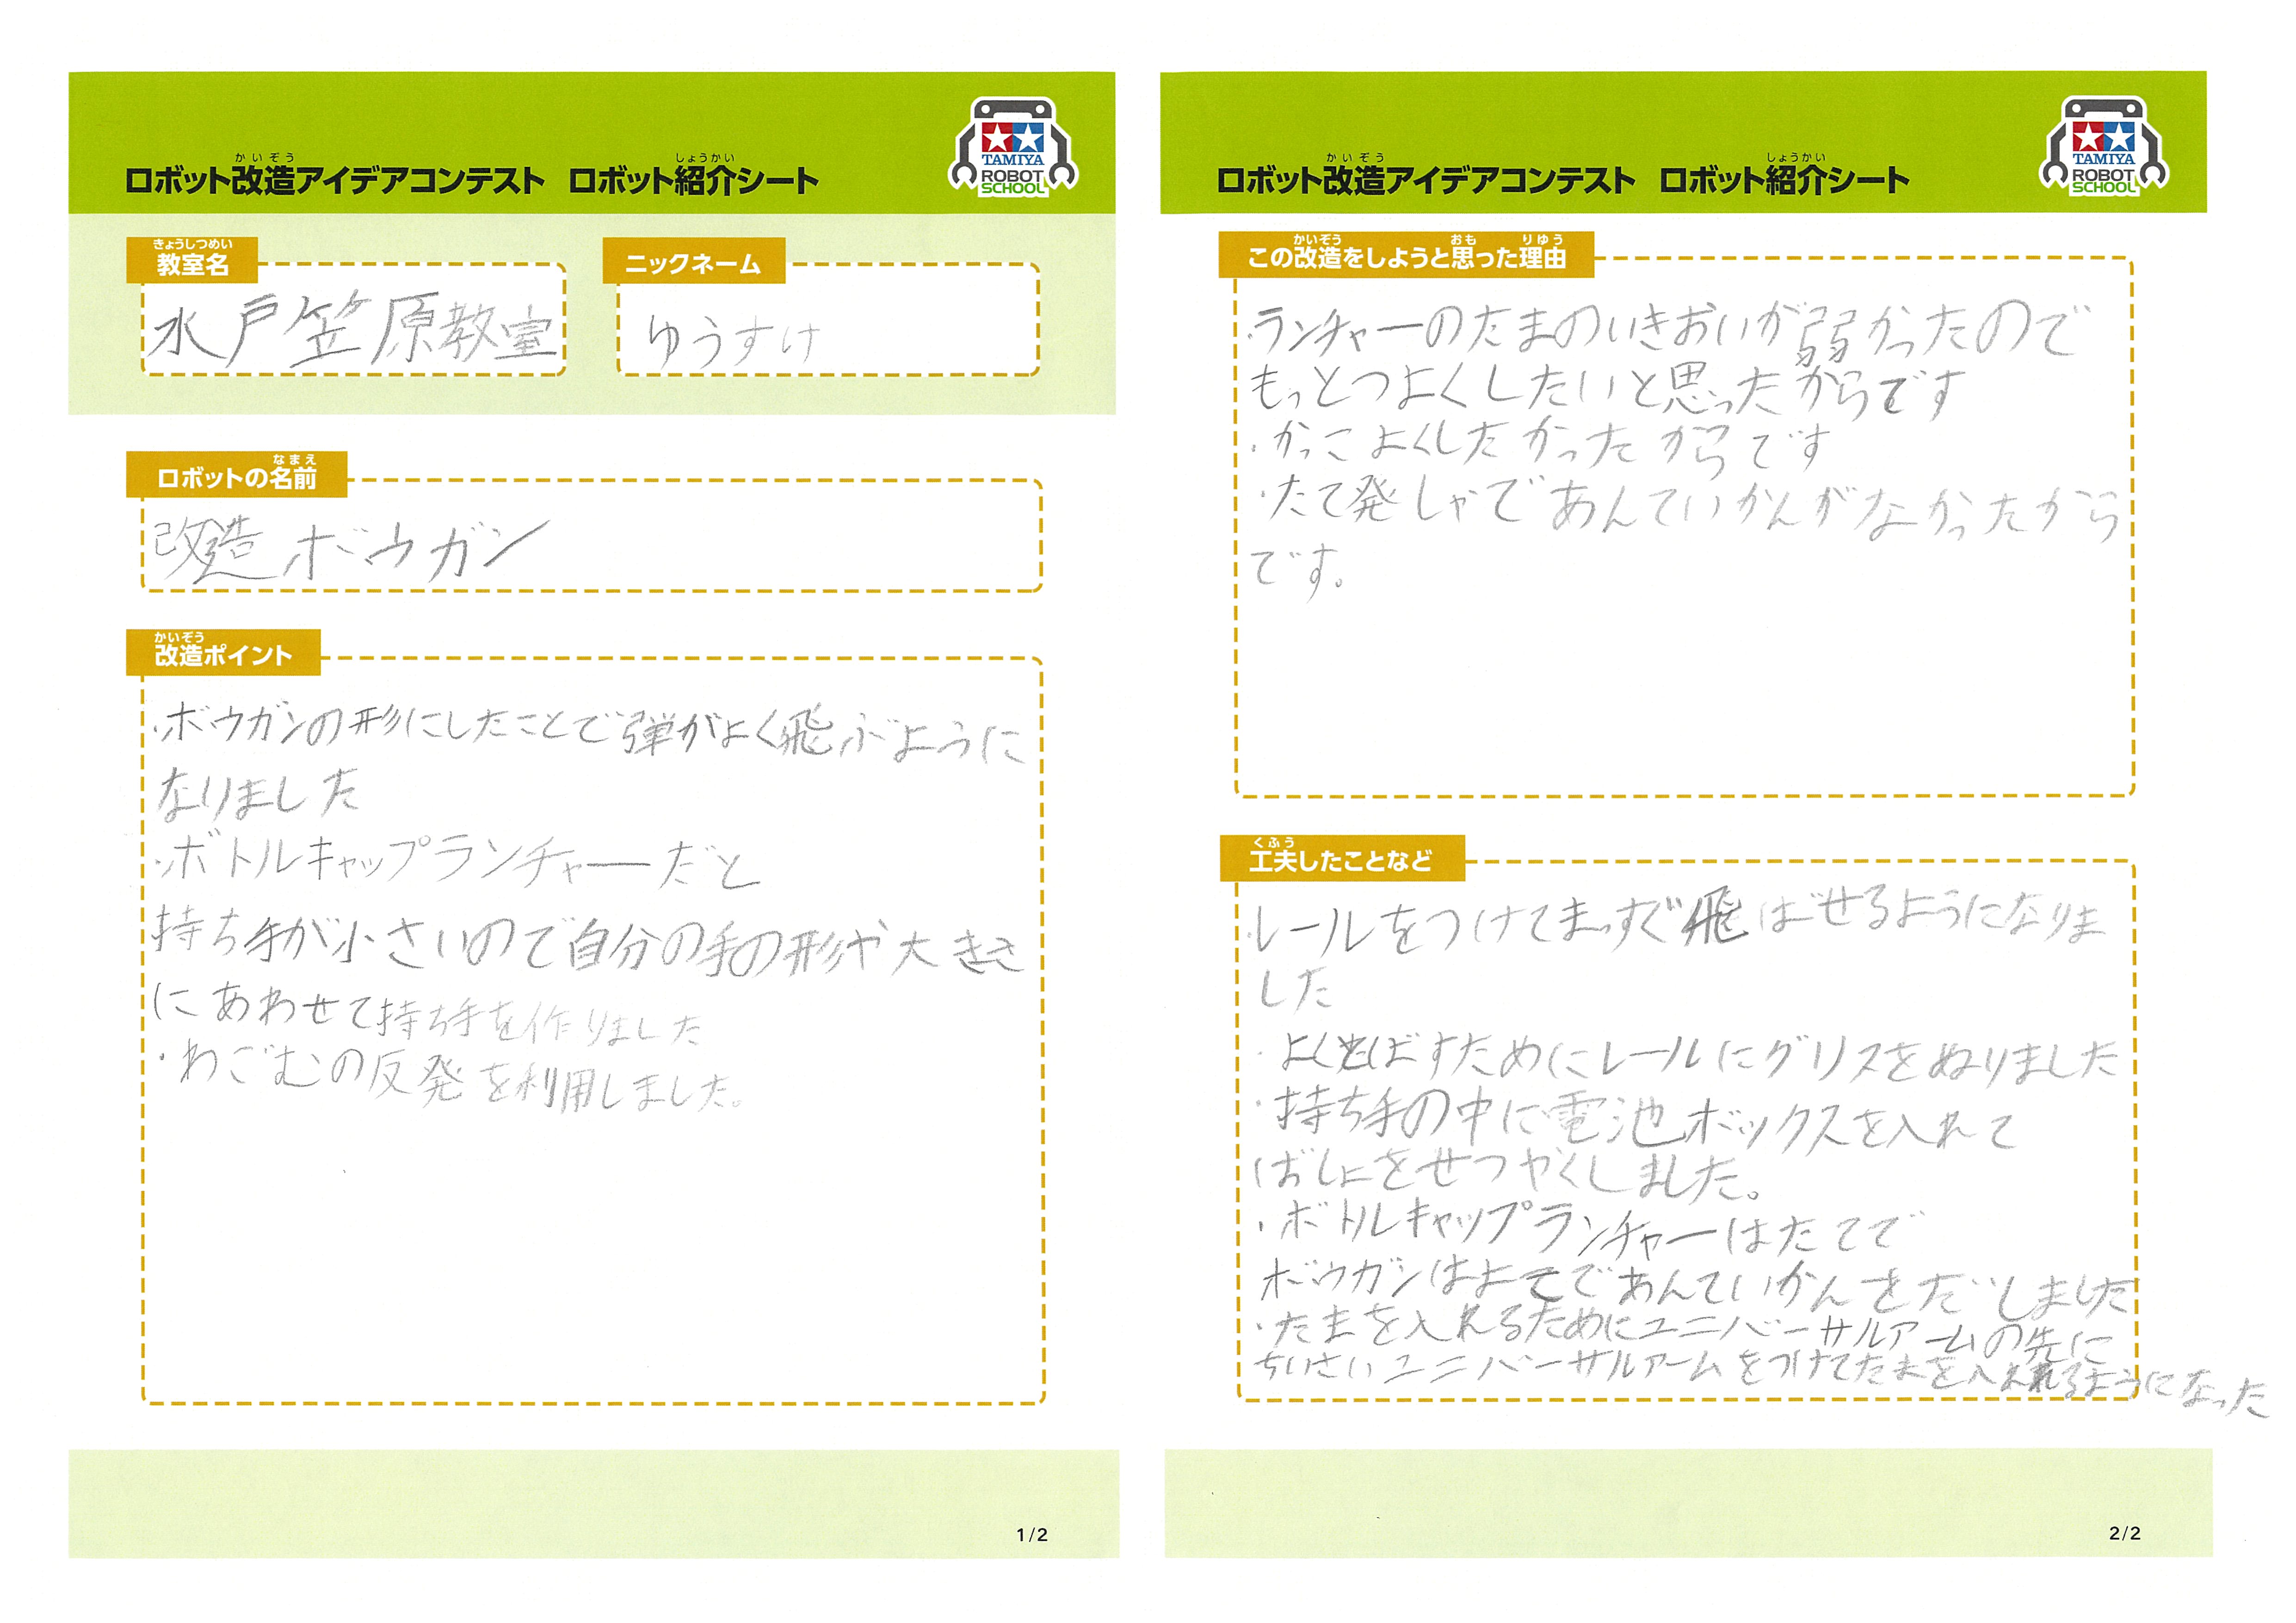 ロボット改造アイデアコンテスト ロボット紹介シート
かいぞう
しょうかい
TAMIYA
ROBOT
SCHOOL
きょうしつめい
教室名
水戸笠原教室
ニックネーム
ゆうすけ
なまえ
ロボットの名前
改造ボウガン
かいぞう
改造ポイント
・ボウガンの形にしたことで弾がよく飛ぶように
なりました
・ボトルキャップランチャーだと
持ち手が小さいので自分の手の形や大きさ
にあわせて持ち手を作りました
・わごむの反発を利用しました。
1/2
ロボット改造アイデアコンテスト ロボット紹介シート
かいぞう
しょうかい
TAMIYA
ROBOT
SCHOOL
かいぞう おも りゆう
この改造をしようと思った理由
・ランチャーのたまのいきおいが弱かったので
もっとつよくしたいと思ったからです
・かっこよくしたかったからです
・たて発しゃであんていかんがなかったから
です。
くふう
工夫したことなど
・レールをつけてまっすぐ飛ばせるようになりま
した
・よくとばすためにレールにグリスをぬりました
・持ち手の中に電池ボックスを入れて
ばしょをせつやくしました。
・ボトルキャップランチャーはたてで
ボウガンはよこであんていかんをだしました
・たまを入れるためにユニバーサルアームの先に
ちいさいユニバーサルアームをつけてたまを入れるようになった
2/2